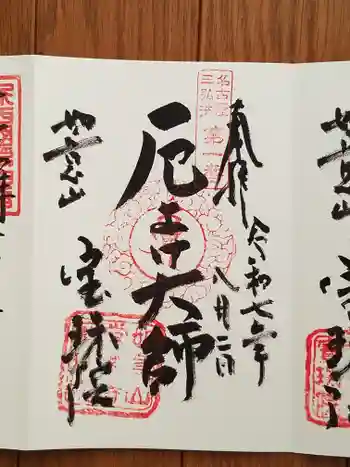 奉拝
令和七年
八月廿二日
名古屋
三弘法
第一番
厄よけ大師
如意山
宝珠院
如意山
宝珠院